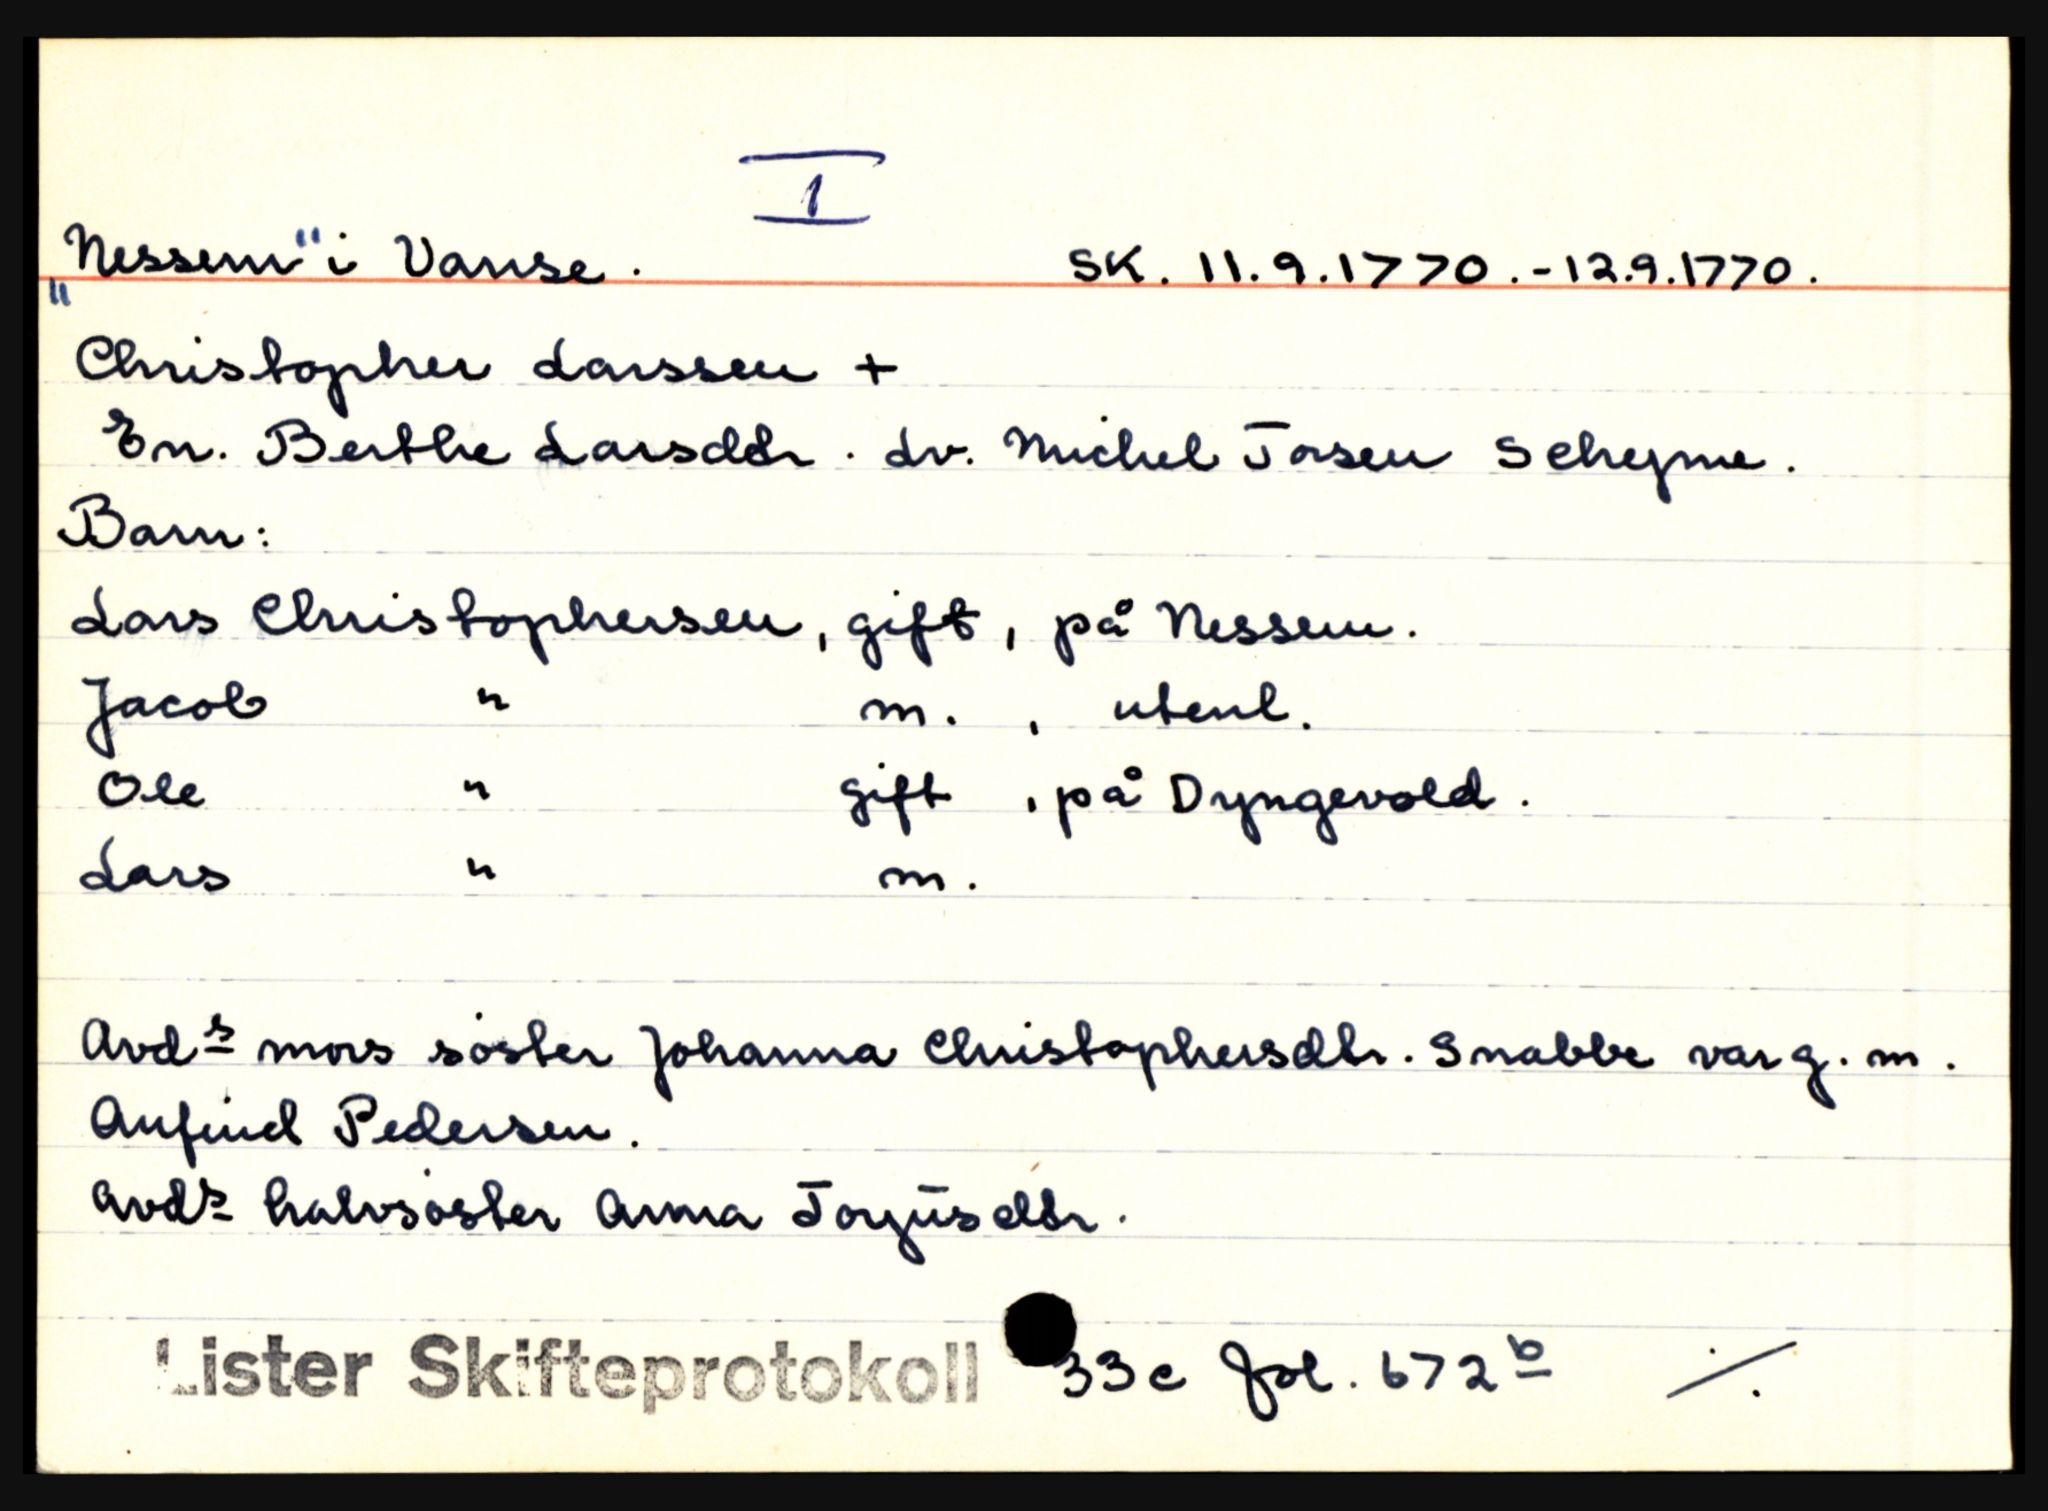 I
„Nessem“ i Vanse. SK. 11.9.1770.-12.9.1770.
Christopher Larssen +
En. Berthe Larsddr. Lv. Michel Tosen Scheyme.
Barn:
Lars Christophersen, gift, på Nessem.
Jacob " m. , utenl.
Ole " gift , på Dyngevold.
Lars " m.
Avds mors søster Johanna Christophersdtr. Snabbe var g. m.
Anfind Pedersen.
Avds halvsøster Anna Torjusddr.
Lister Skifteprotokoll 33c fol. 672b ./.